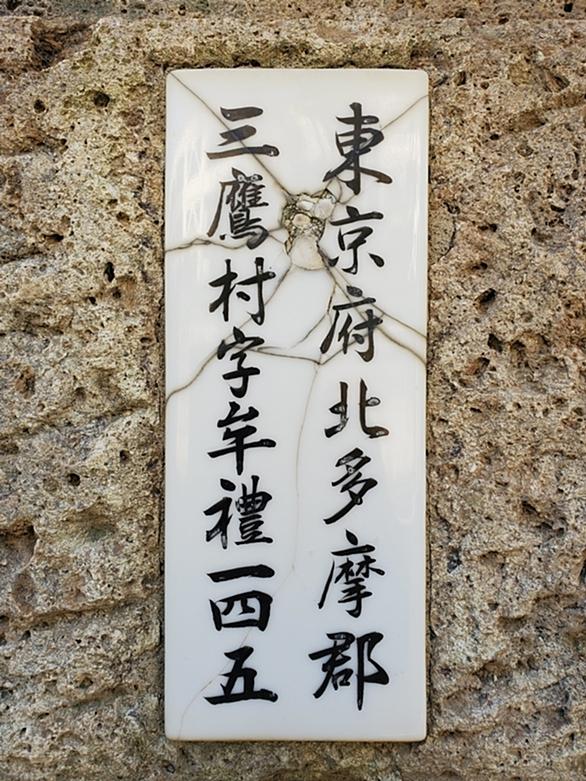 東京府北多摩郡
三鷹村字牟禮一四五